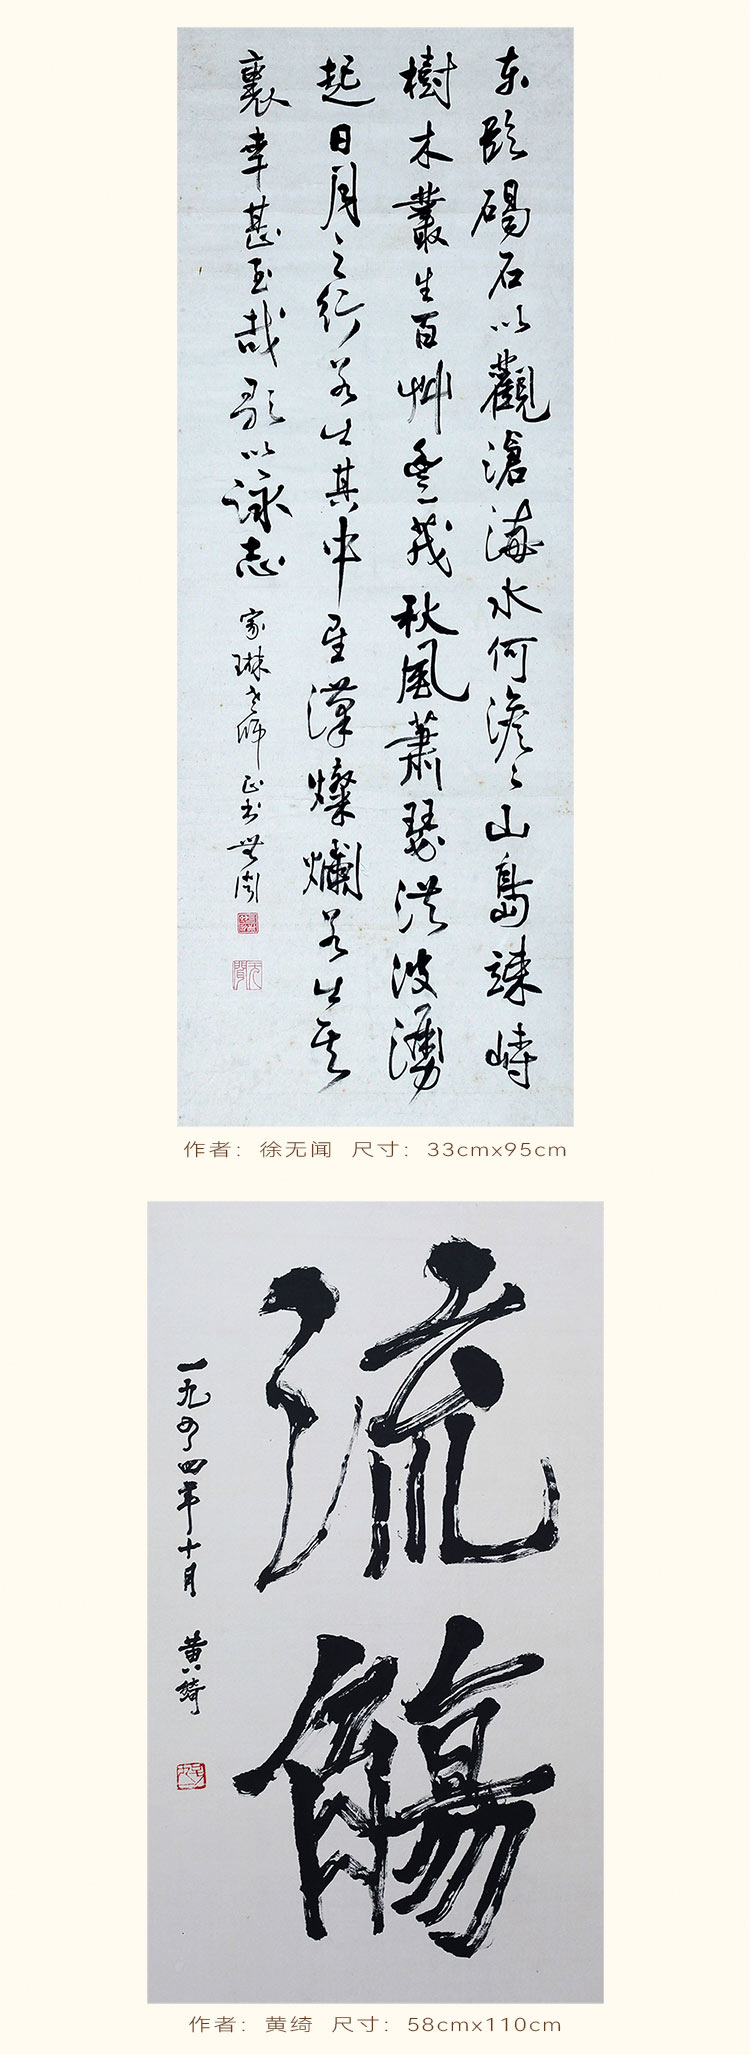 东临碣石以觀滄海水何澹々山島竦峙
樹木叢生百艸豐茂秋風蕭瑟洪波湧
起日月之行若出其中星漢燦爛若出其
裏幸甚至哉歌以詠志
家琳老師正书 無闻
作者：徐无闻 尺寸：33cmx95cm
流觴
一九八四年十月
黄绮
作者：黄绮 尺寸：58cmx110cm